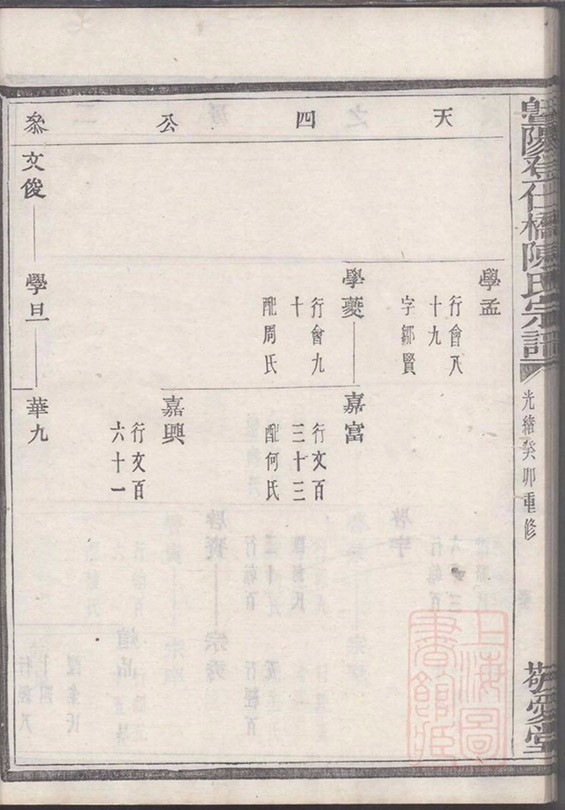 曁陽登仕橋陳氏宗譜
光緒癸卯重修
敬愛堂
天四公叅
學孟
行會八
十九
字鄒賢
學夔
行會九
十
配周氏
嘉富
行文百
三十三
配何氏
嘉興
行文百
六十一
文俊
學旦
華九
上海圖
書館藏